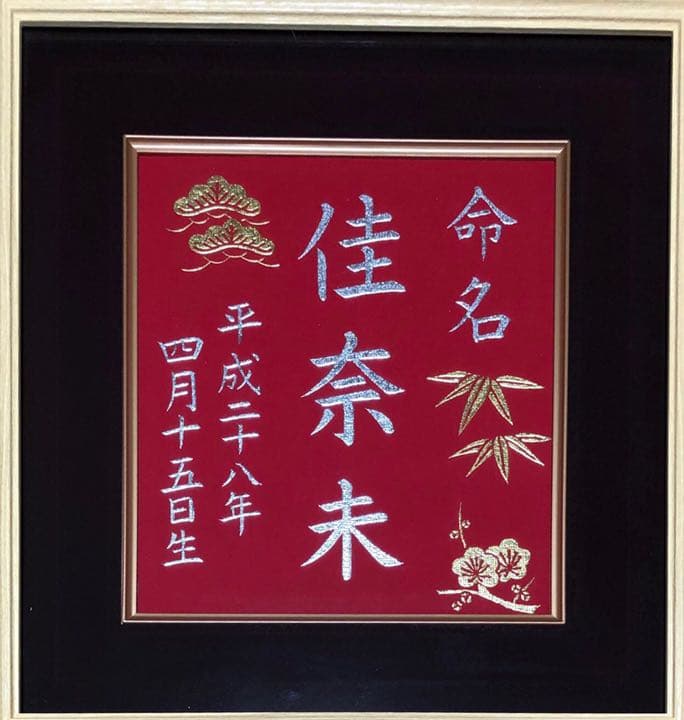 命名
佳奈未
平成二十八年
四月十五日生